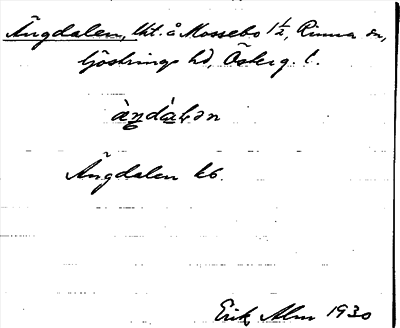 Ängdalen, lht. å Mossebo 1½, Rinna sn,
Göstrings hd, Österg. l.
àndàlən
Ängdalen kb.
Erik Alm 1930